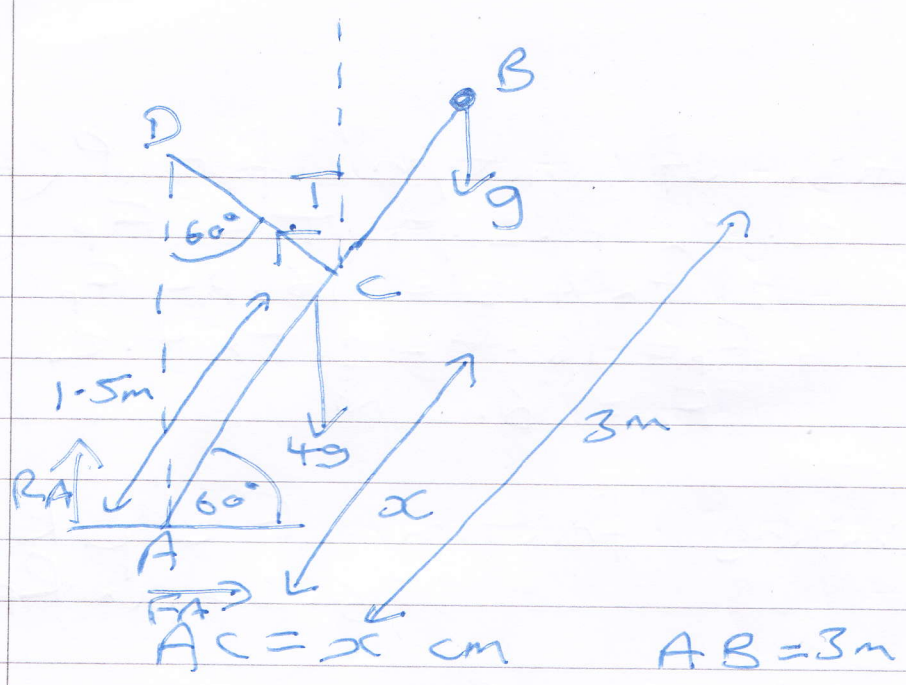 B
D
T
g
60°
C
1.5m
4g
3m
RA
60°
x
A
FA
AC = x cm AB = 3m